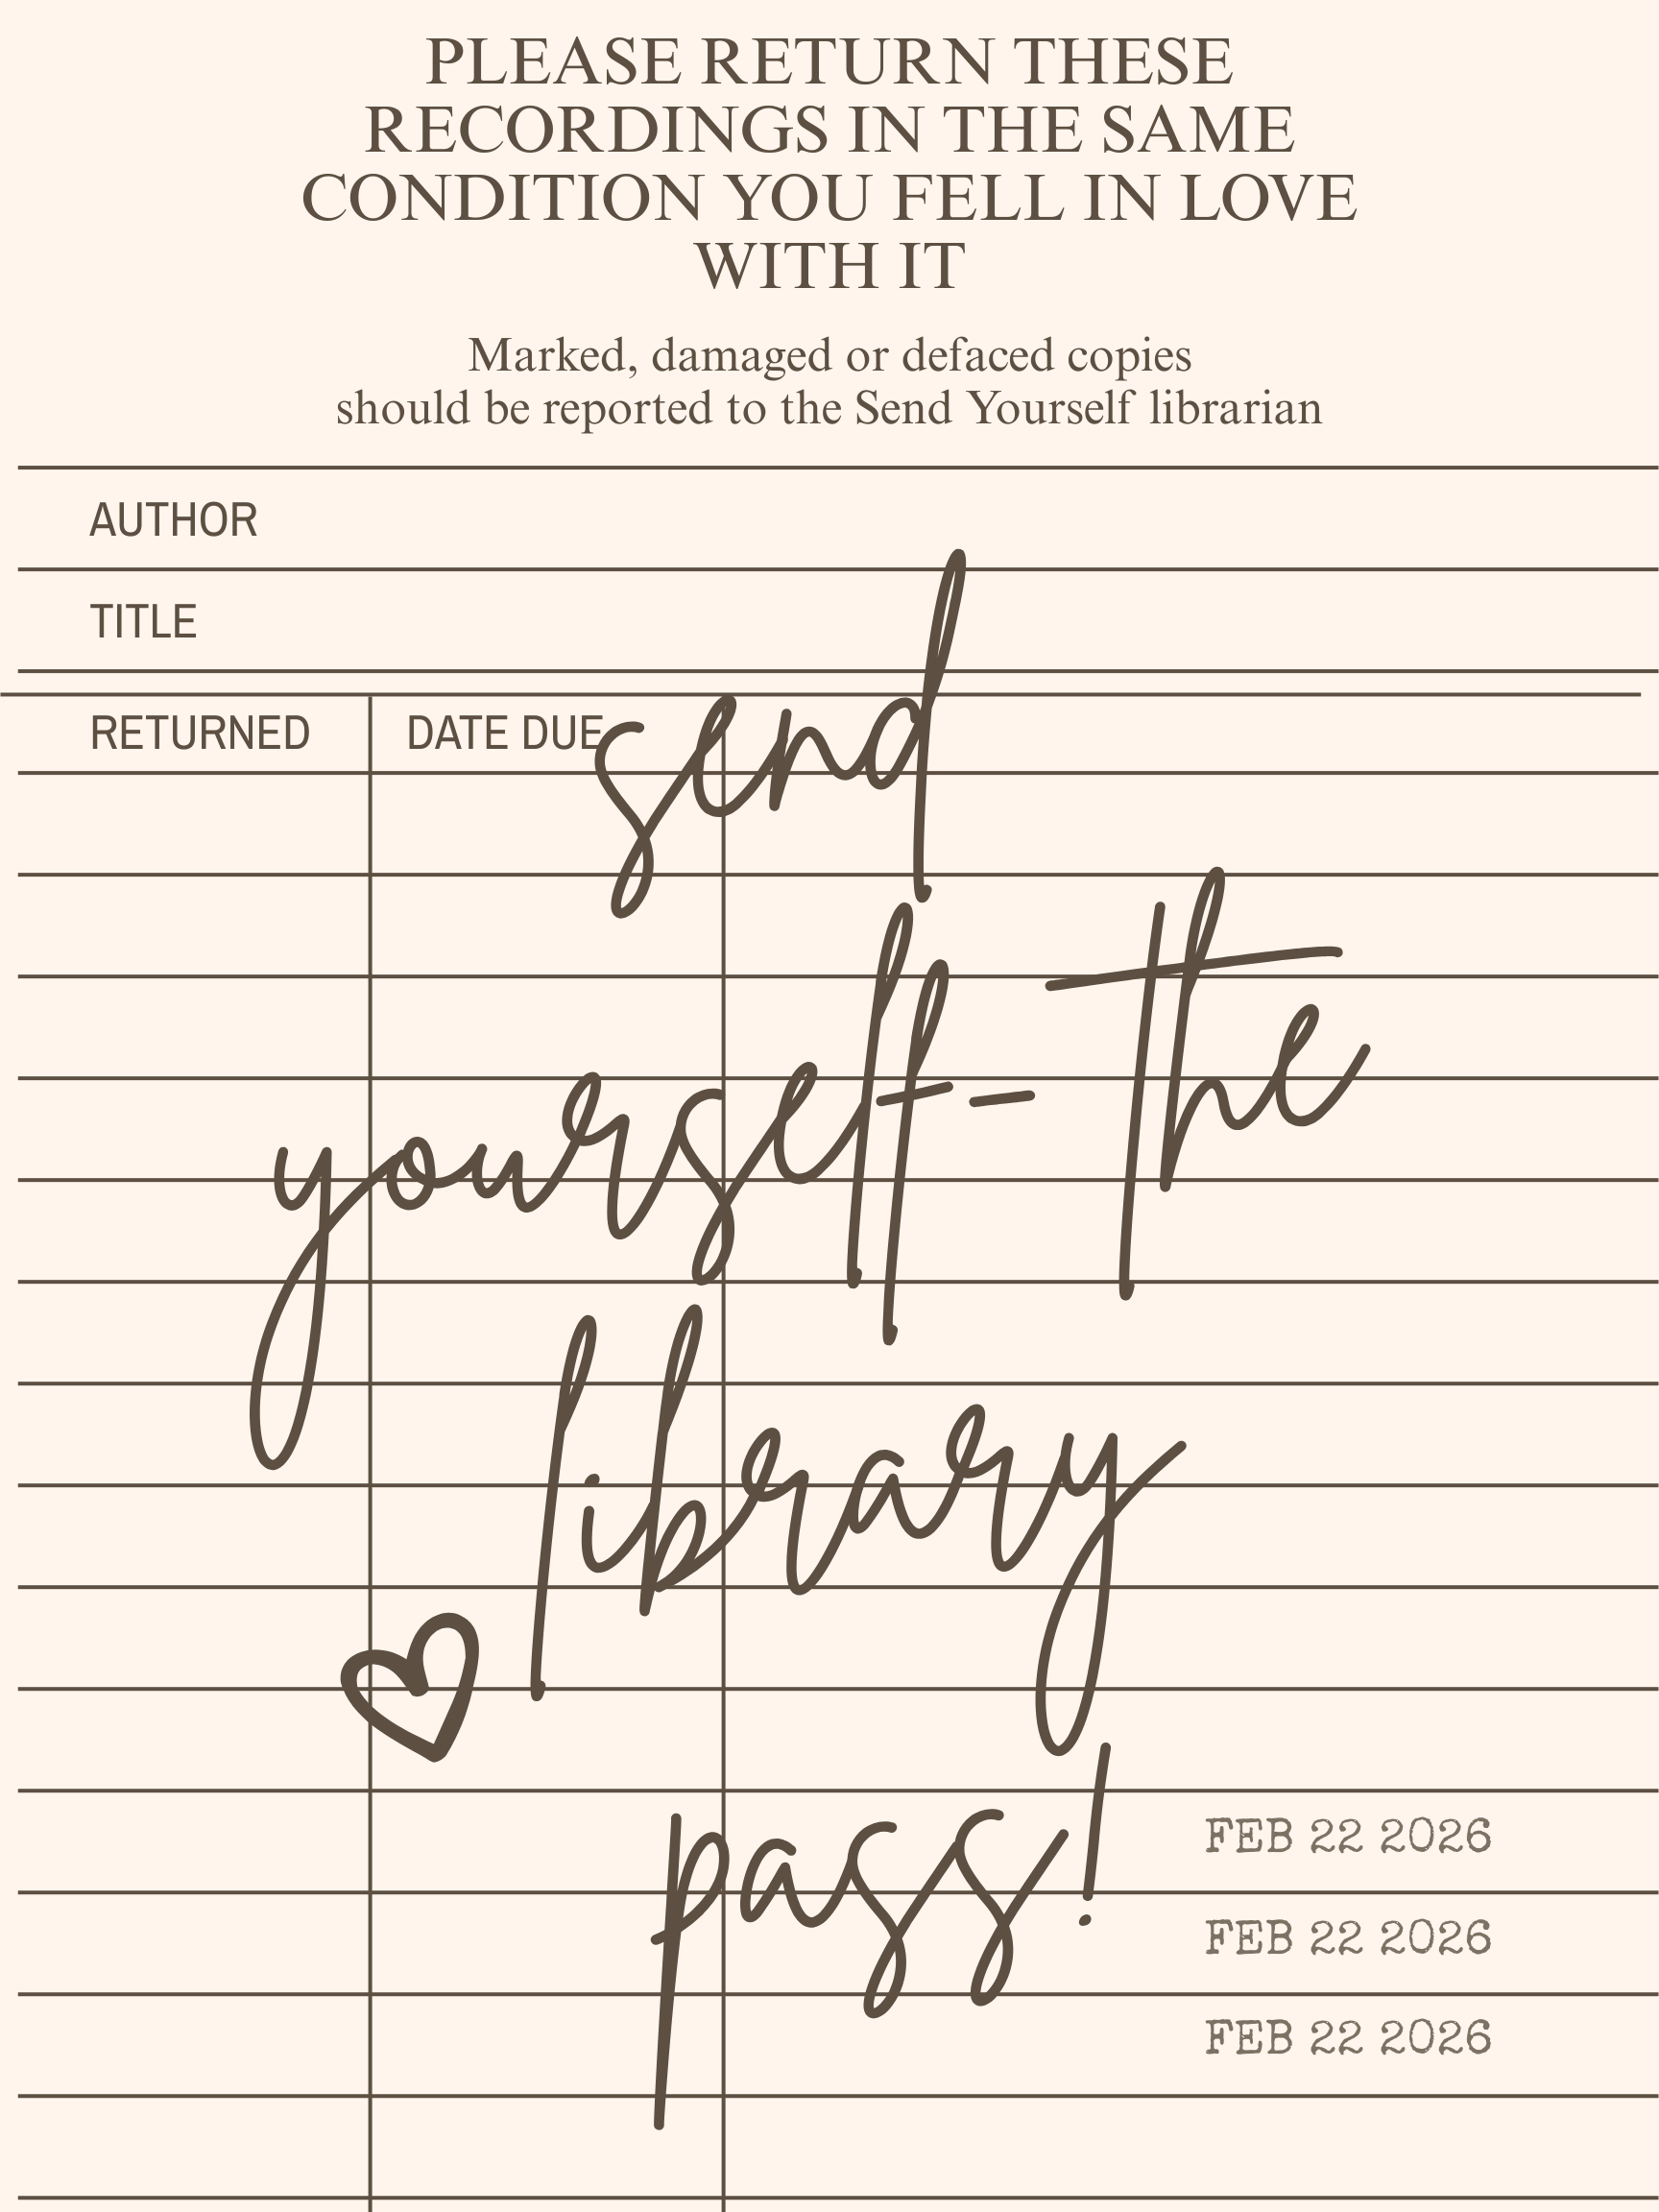 PLEASE RETURN THESE
RECORDINGS IN THE SAME
CONDITION YOU FELL IN LOVE
WITH IT
Marked, damaged or defaced copies
should be reported to the Send Yourself librarian
AUTHOR
TITLE
RETURNED DATE DUE
send
yourself-the
library
pass!
FEB 22 2026
FEB 22 2026
FEB 22 2026